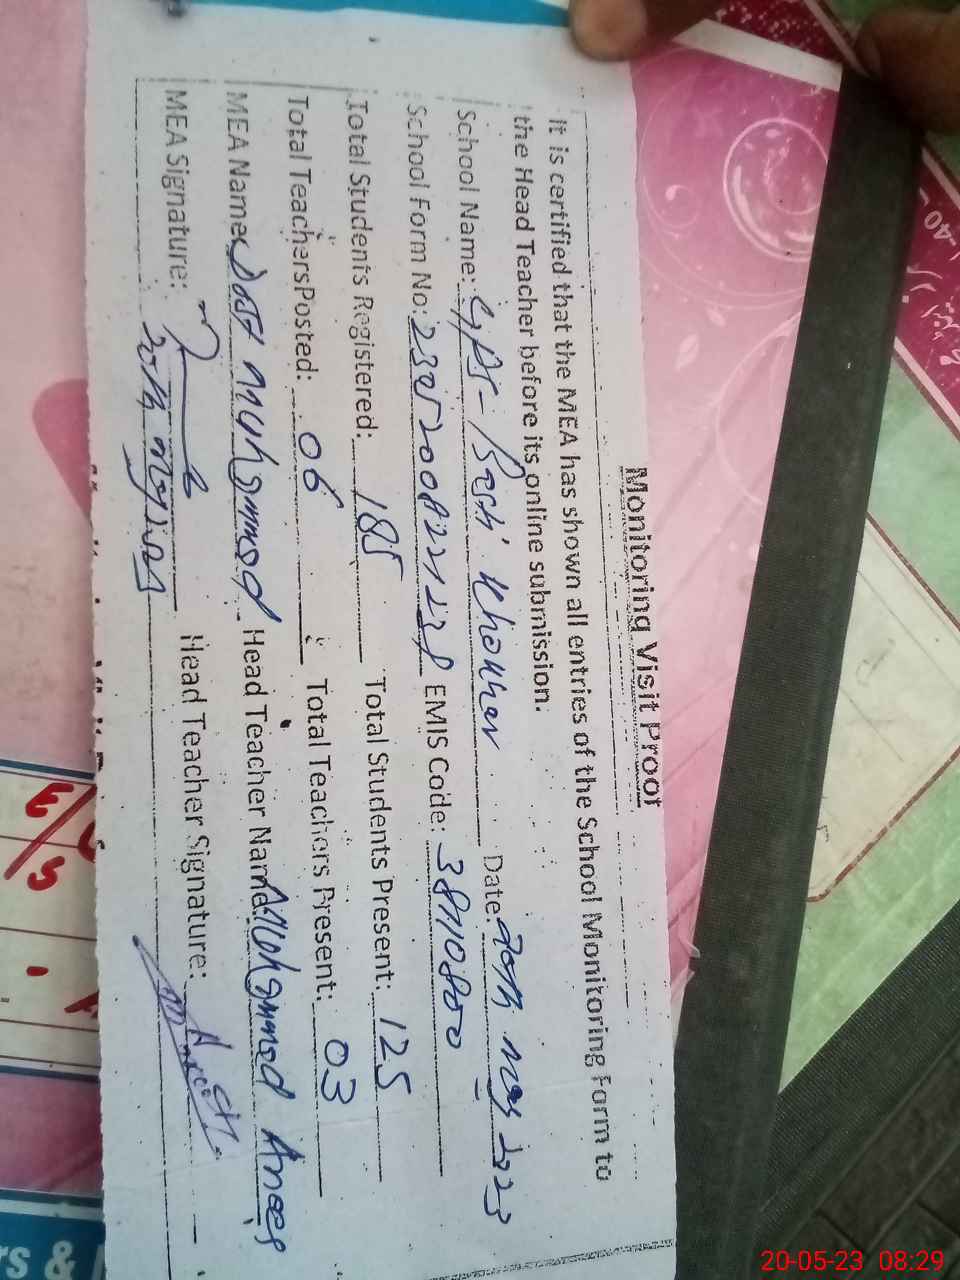 Monitoring Visit Proof
It is certified that the MEA has shown all entries of the School Monitoring Form to
the Head Teacher before its online submission.
School Name: GPS- Date: 20th May 2023
School Form No: EMIS Code:
Total Students Registered: 185 Total Students Present: 125
Total Teachers Posted: 06 Total Teachers Present: 03
MEA Name: Dost Muhammad Head Teacher Name: Muhammad Anees
MEA Signature: Head Teacher Signature:
E/S
rs &
40
20-05-23 08:29